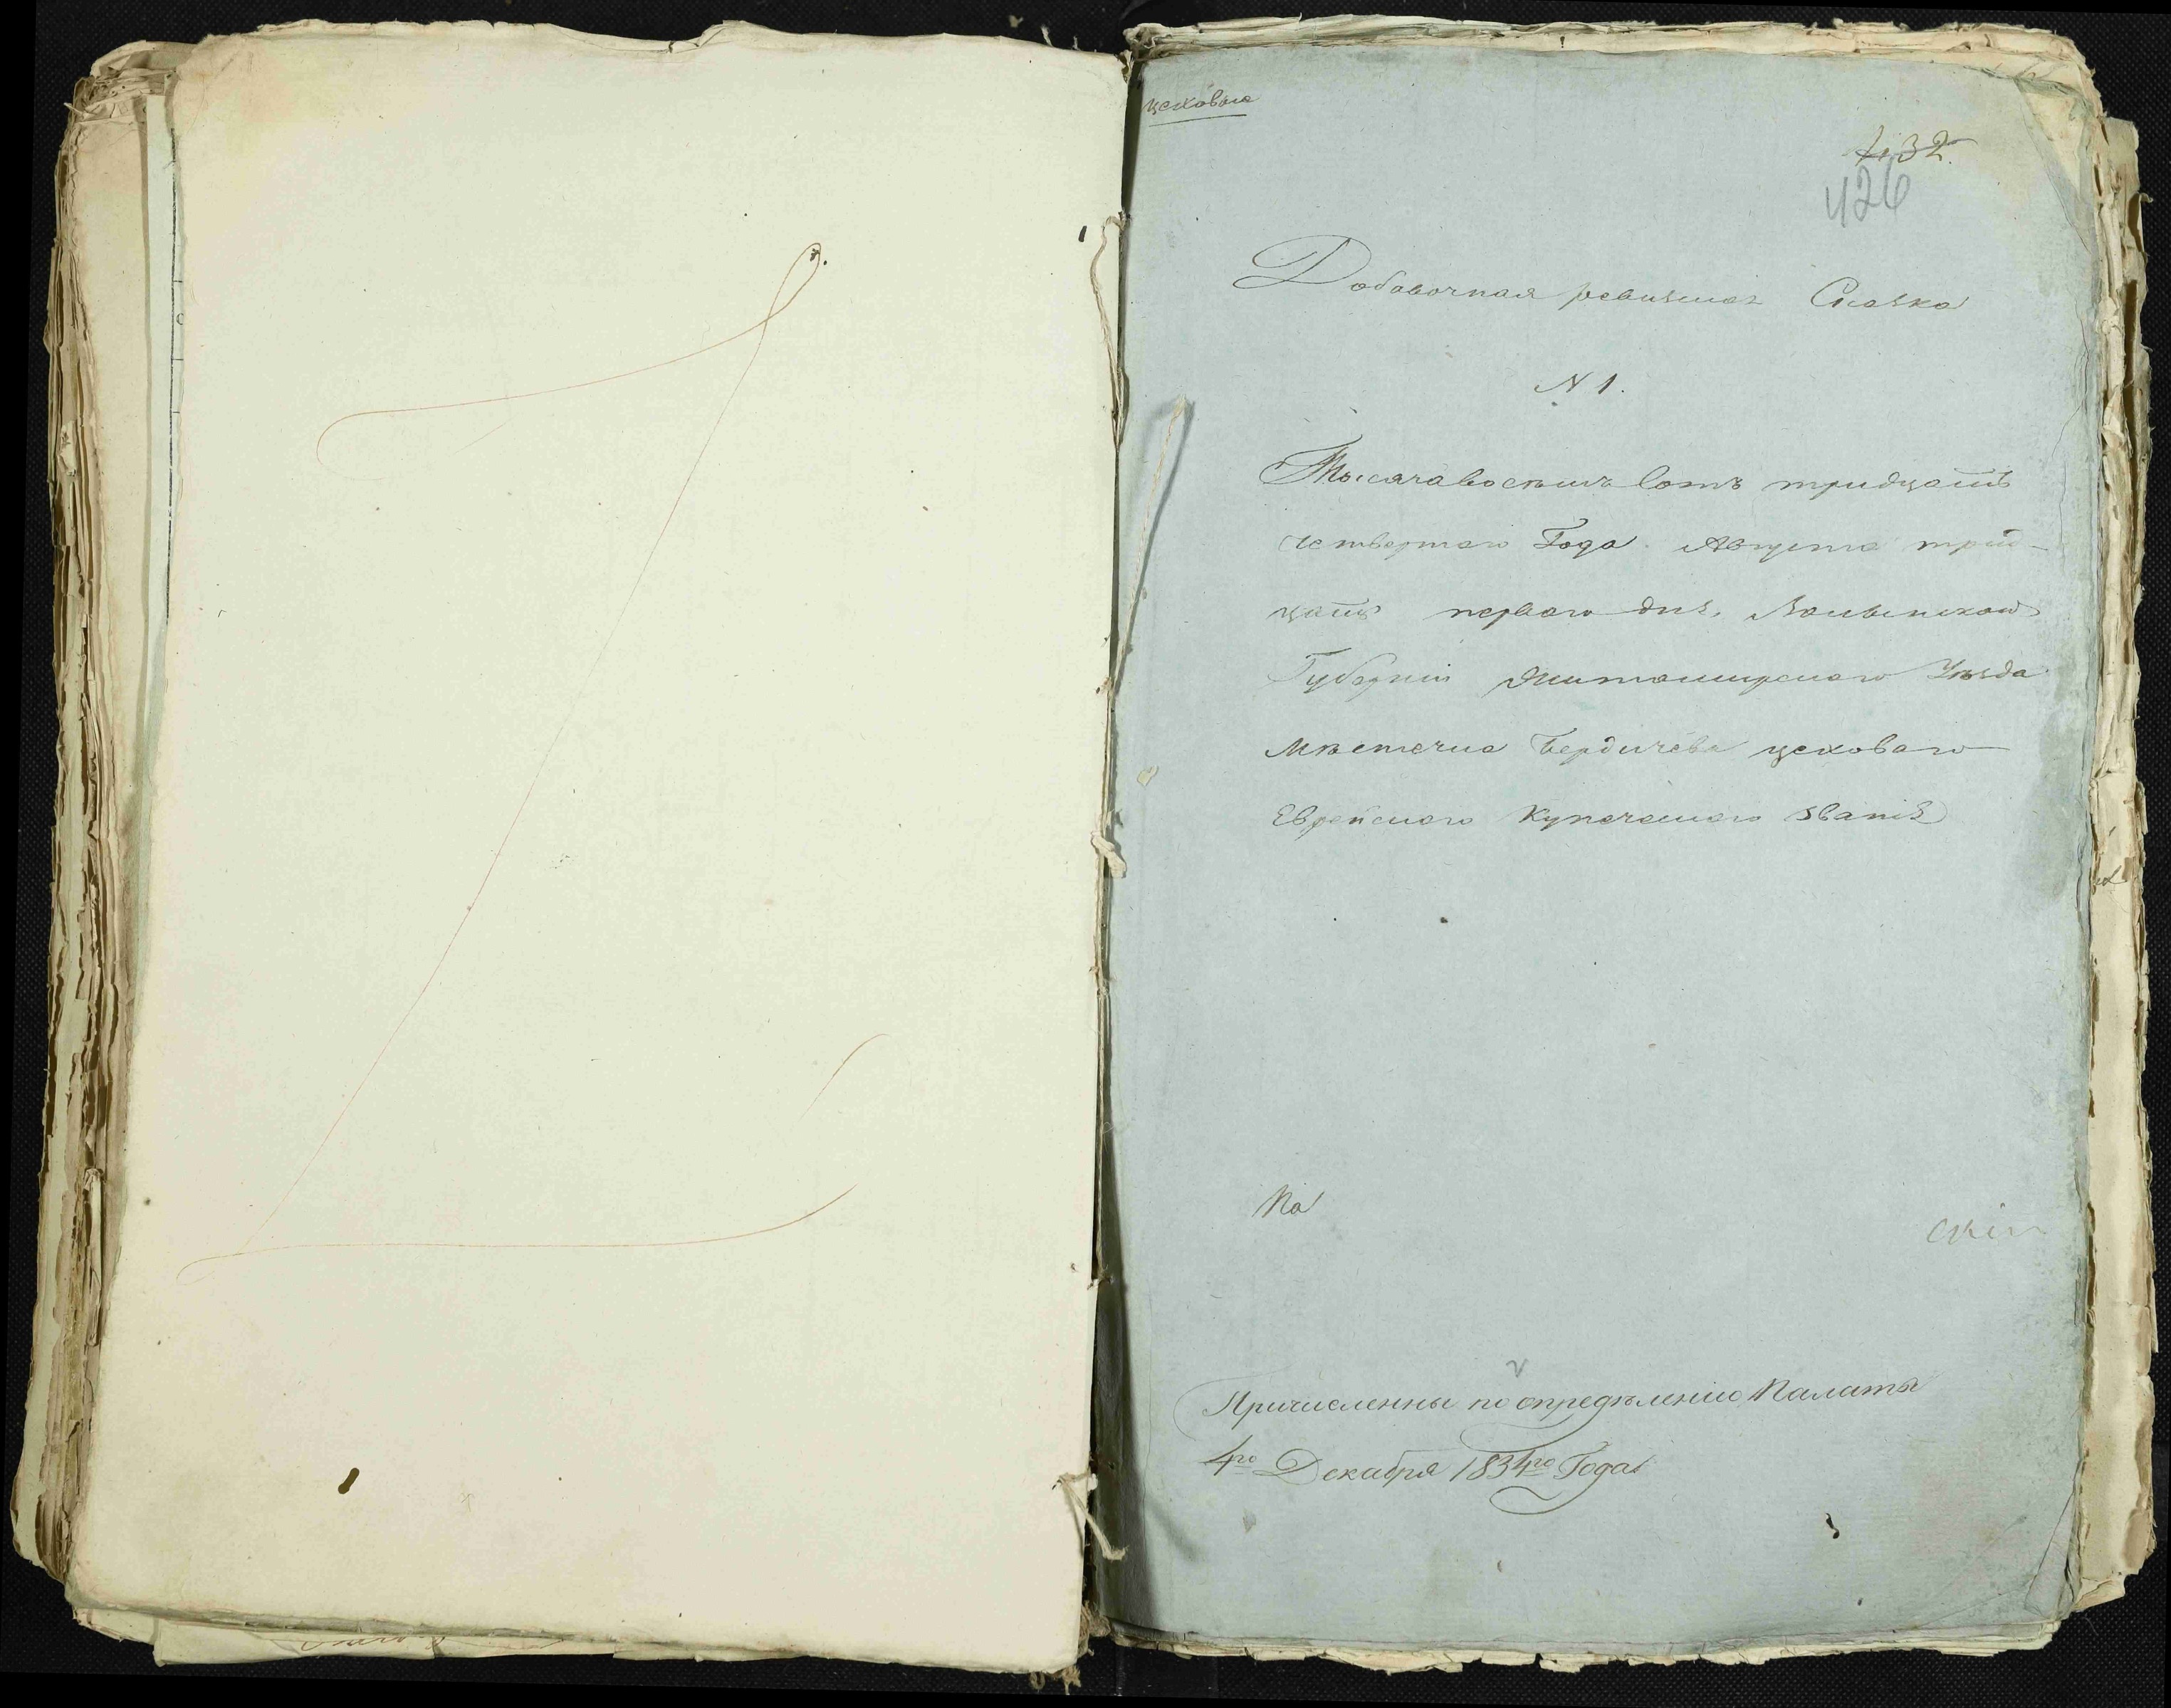 цеховые
432
426
Добавочная ревизская Сказка
N 1.
Тысяча восемь Сотъ тридцать
четвертаго Года Августа трид-
цать перваго дня, Волынской
Губерніи Житомирскаго Уѣзда
мѣстечка Бердичева цеховаго
Еврейскаго Купеческаго званія
На
скій
Причисленны по опредѣленію Палаты
4го Декабря 1834го Года